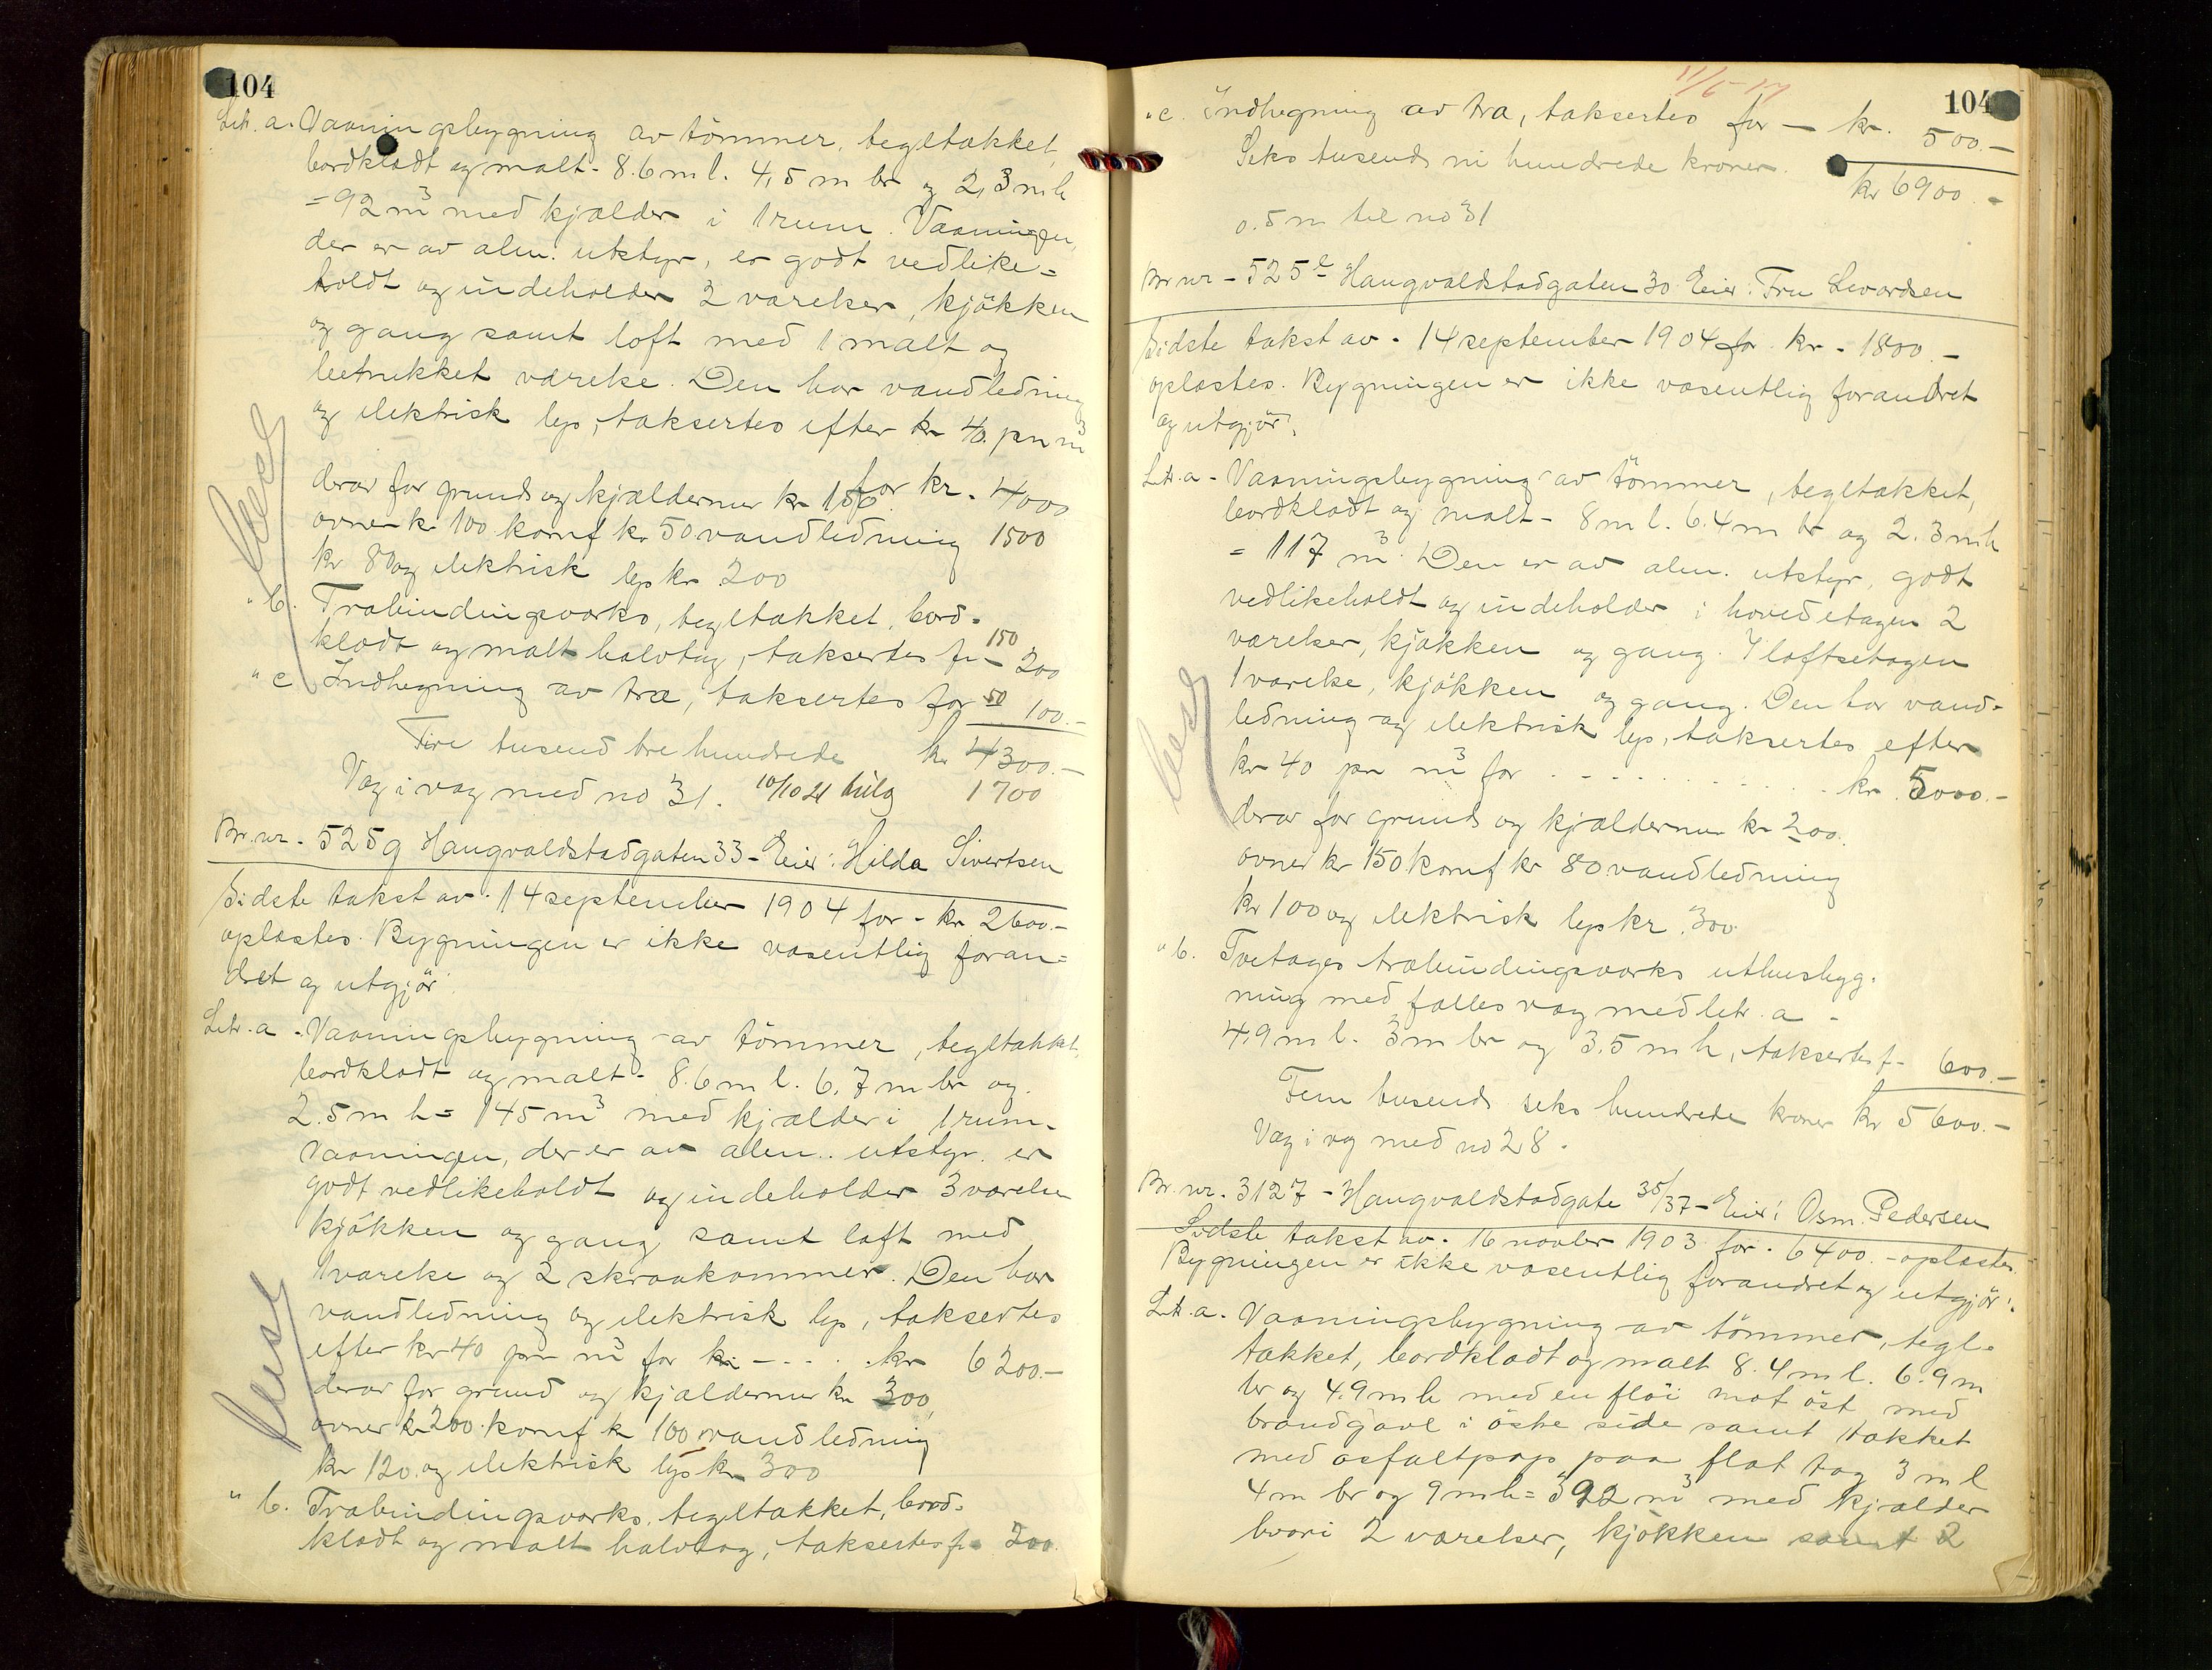 104
Litr. a. Vaaningsbygning av tömmer, tegltækket,
bordklædt og malt - 8.6 m l. 4,5 m br og 2,3 m h
= 92 m³ med kjælder i 1 rum. Vaaningen,
der er av alm. utstyr, er godt vedlike=
holdt og indeholder 2 værelser, kjökken
og gang samt loft med 1 malt og
betrukket værelse. Den har vandledning
og elektrisk lys, taksertes efter kr 40. pr m³
for kr. 4000
derav for grund og kjældermur kr 150.
ovner kr 100 komf kr 50 vandledning 1500
kr 80 og elektrisk lys kr 200
" b. Træbindingsværks, tegltækket, bord-
klædt og malt halvtag, taksertes fr - 200
150
" c Indhegning av træ, taksertes for 50 100.-
Fire tusend tre hundrede kr 4300.-
Væg i væg med no 31. 10/10 21 1700
Br. nr. - 525g Haugvaldstadgaten 33 - Eier: Hilda Sivertsen
Sidste takst av 14 september 1904 for - kr 2600.-
oplæstes. Bygningen er ikke væsentlig foran=
dret og utgjör:
Litr. a - Vaaningsbygning av tömmer, tegltækket,
bordklædt og malt - 8.6 m l. 6,7 m br og
2.5 m h = 145 m³ med kjælder i 1 rum.
Vaaningen, der er av alm. utstyr. er
godt vedlikeholdt og indeholder 3 værelser
kjökken og gang samt loft med
1 værelse og 2 skraakammer. Den har
vandledning og elektrisk lys, taksertes
efter kr 40 pr m³ for kr - - . . . kr 6200.-
derav for grund og kjældermur kr 300,
ovner kr 200. komf kr 100 vandledning
kr 120. og elektrisk lys kr 300
" b. Træbindingsværks, tegltækket, bord-
klædt og malt halvtag, taksertes fr 200.
11/6-17
104
" c. Indhegning av træ, taksertes for - kr. 500.-
Seks tusend ni hundrede kroner. kr 6900.-
0.5 m til no 31
Br nr - 525e Haugvaldstadgaten 30 Eier: Fru Sivardsen
Sidste takst av - 14 september 1904 for kr - 1800.-
oplæstes. Bygningen er ikke væsentlig forandret
og utgjör:
Litr. a - Vaaningsbygning av tömmer, tegltækket,
bordklædt og malt - 8 m l. 6.4 m br og 2.3 m h
= 117 m³. Den er av alm. utstyr, godt
vedlikeholdt og indeholder i hovedetagen 2
værelser, kjökken og gang. I loftsetagen
1 værelse, kjökken og gang. Den har vand-
ledning og elektrisk lys, taksertes efter
kr 40 pr m³ for . - - . . . . . . . kr. 5000.-
derav for grund og kjældermur kr 200.
ovner kr 150 komf kr 80 vandledning
kr 100 og elektrisk lys kr. 300
" b. Toetages træbindingsværks uthusbyg-
ning med fælles væg med litr. a -
4,9 m l. 3 m br og 3,5 m h, taksertes f- 600.-
Fem tusend seks hundrede kroner kr 5600.-
Væg i væg med no 28.
Br. nr. 3127 - Haugvaldstadgate 35/37 - Eier: Osm. Pedersen
Sidste takst av. 16 novbr 1903 for. 6400.- oplæstes.
Bygningen er ikke væsentlig forandret og utgjör:
Litr. a. Vaaningsbygning av tömmer, tegl-
tækket, bordklædt og malt 8.4 m l. 6.9 m
br og 4.9 m h med en flöi mot öst med
brandgavl i östre side samt tækket
med asfaltpap paa flat tag 3 m l
4 m br og 9 m h = 392 m³ med kjælder
hvori 2 værelser, kjökken samt 2